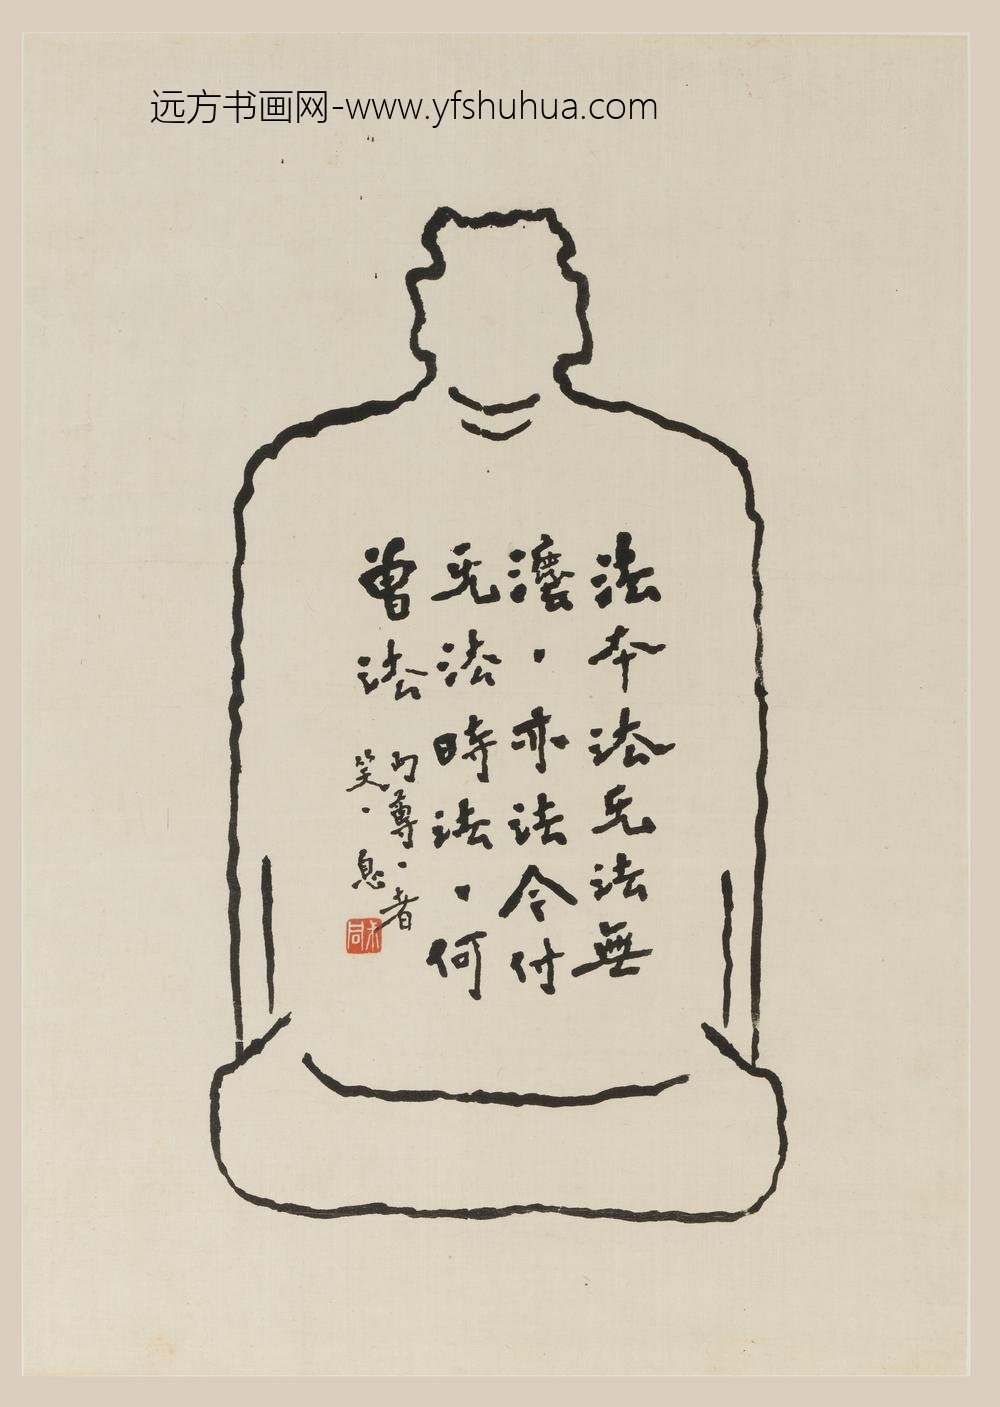 远方书画网-www.yfshuhua.com
法本法无法無
灋、亦法今付
无法時法、何
曾法
尊、者
笑、息